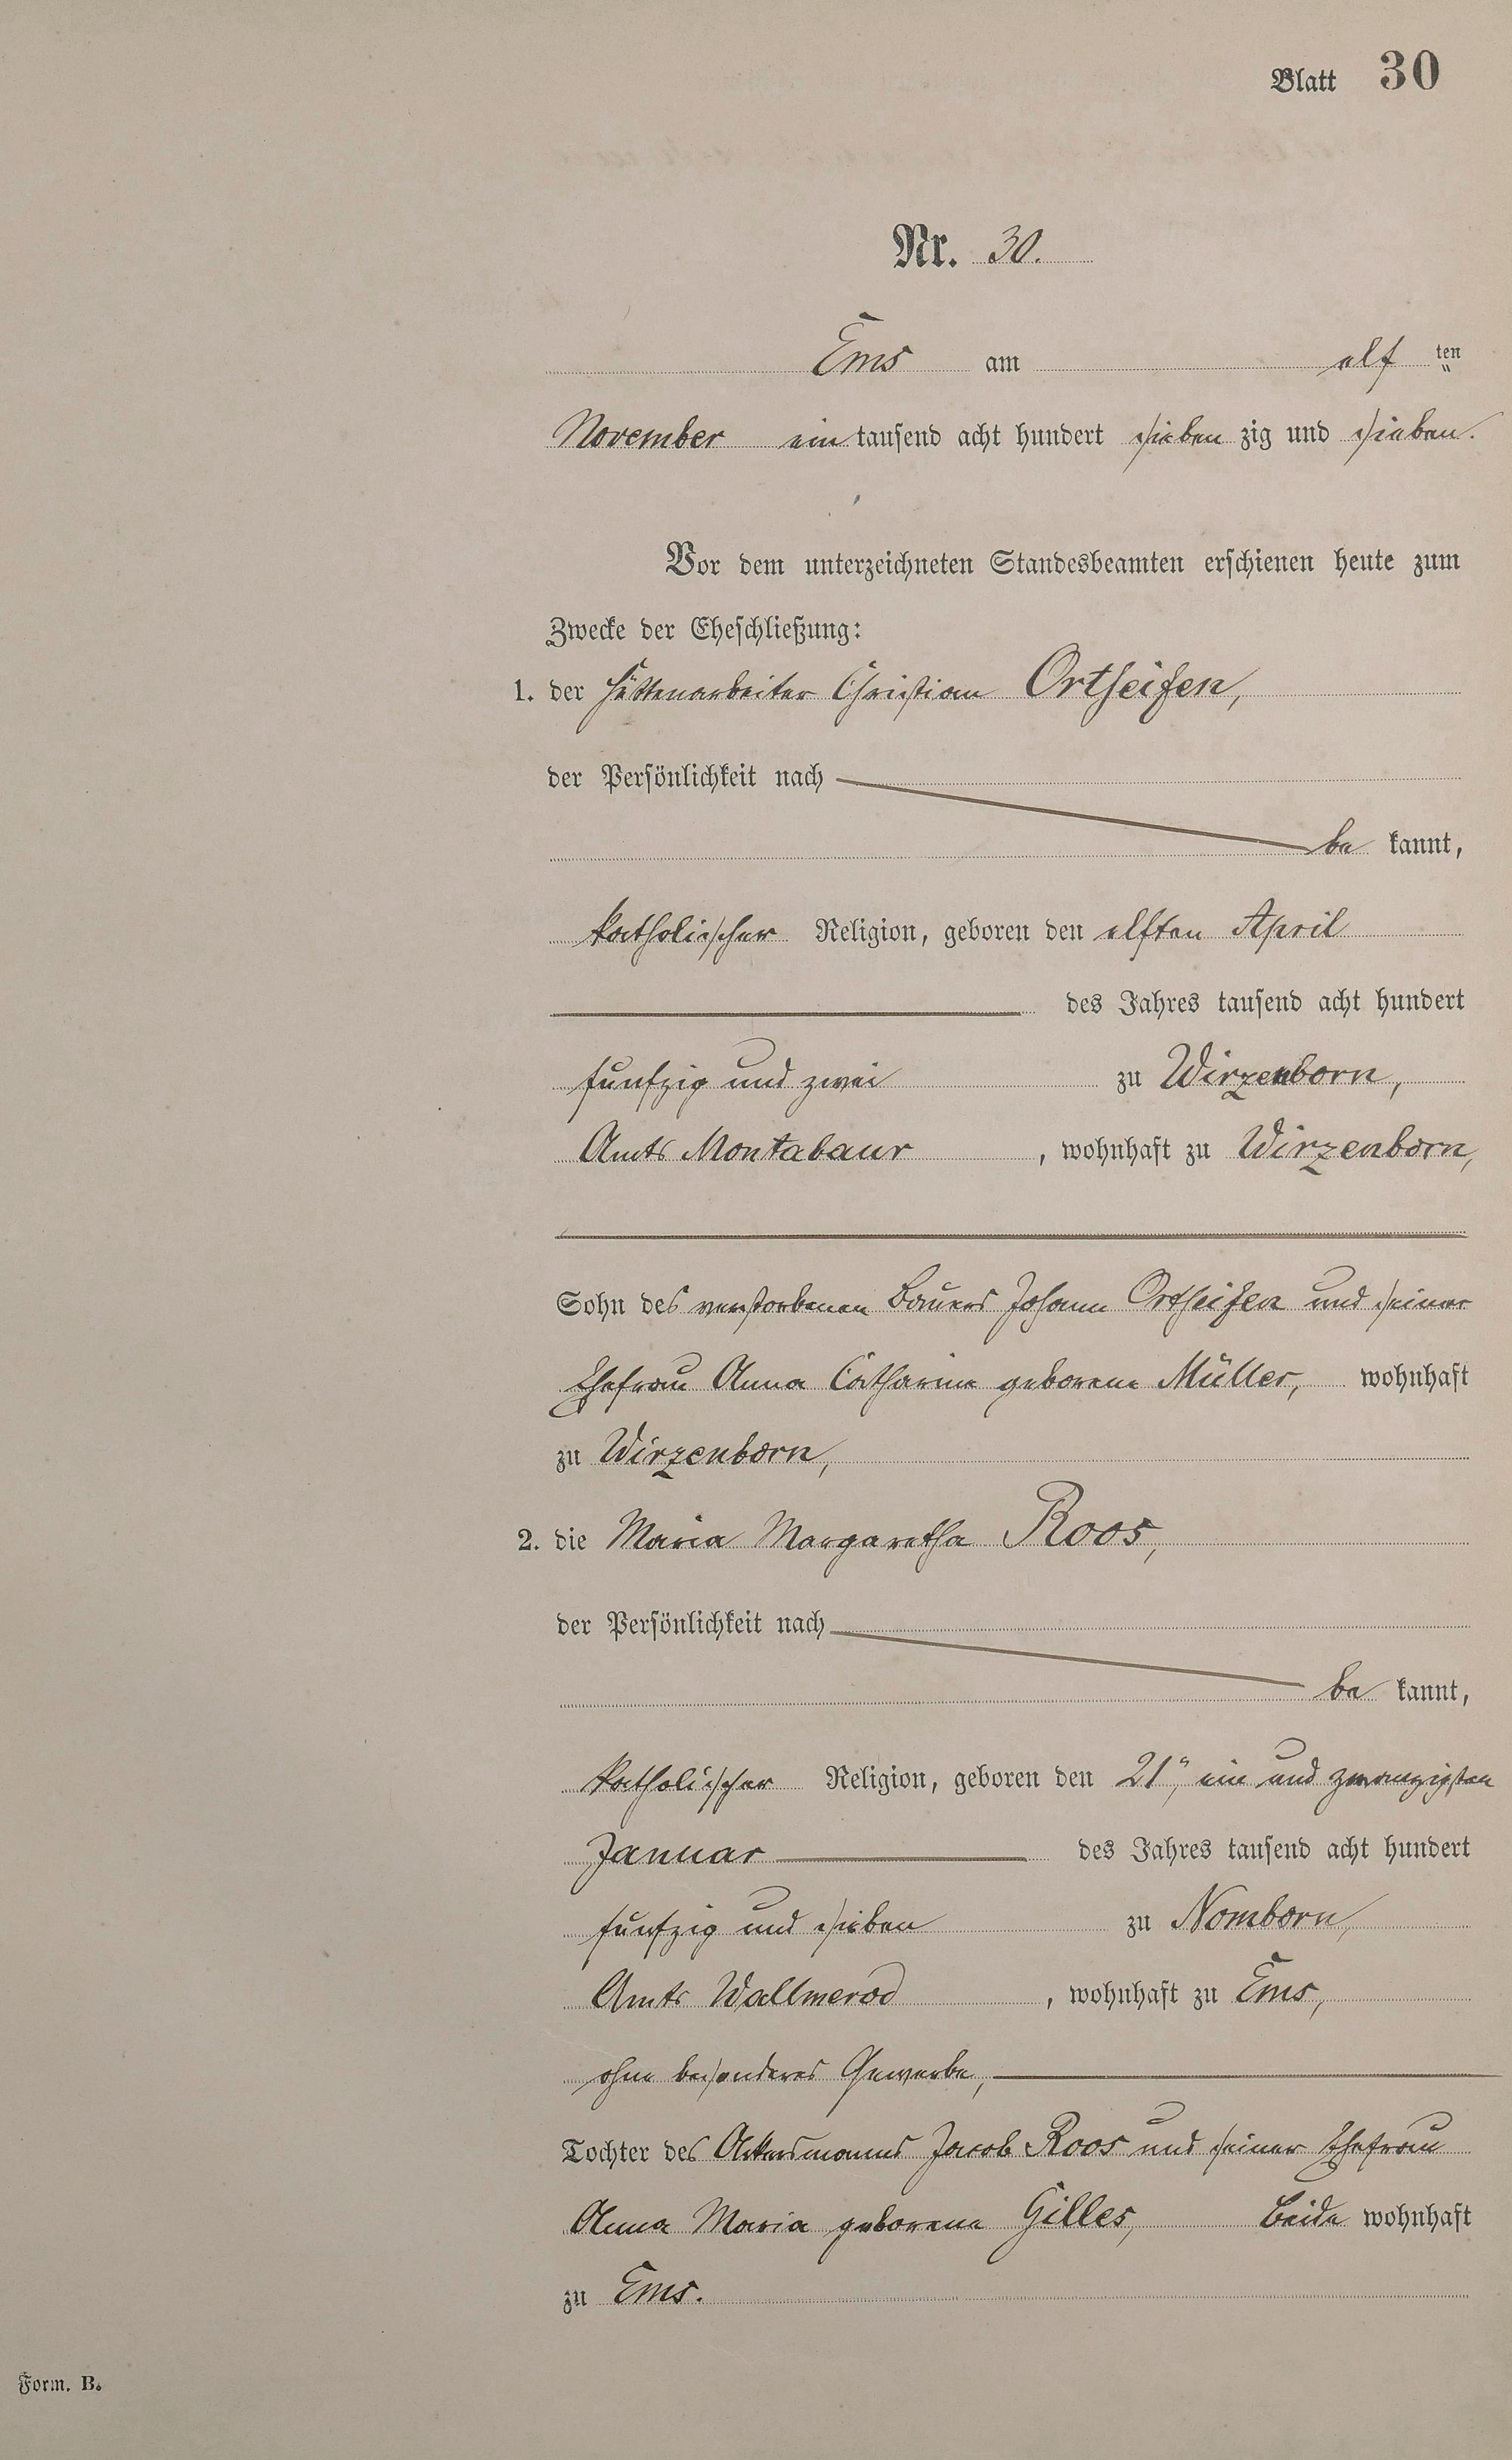 Blatt 30
Nr. 30.
Ems am elf ten
November ein tausend acht hundert sieben zig und sieben.
Vor dem unterzeichneten Standesbeamten erschienen heute zum
Zwecke der Eheschließung:
1. der Hüttenarbeiter Christian Ortseifen,
der Persönlichkeit nach
be kannt,
katholischer Religion, geboren den elften April
des Jahres tausend acht hundert
funfzig und zwei zu Wirzenborn,
Amts Montabaur, wohnhaft zu Wirzenborn,
Sohn des verstorbenen Bauers Johann Ortseifen und seiner
Ehefrau Anna Catharina geborene Müller, wohnhaft
zu Wirzenborn,
2. die Maria Margaretha Roos,
der Persönlichkeit nach
be kannt,
katholischer Religion, geboren den 21", ein und zwanzigsten
Januar des Jahres tausend acht hundert
funfzig und sieben zu Nomborn,
Amts Wallmerod, wohnhaft zu Ems,
ohne besonderes Gewerbe,
Tochter des Ackersmanns Jacob Roos und seiner Ehefrau
Anna Maria geborene Gilles, Beide wohnhaft
zu Ems.
Form. B.